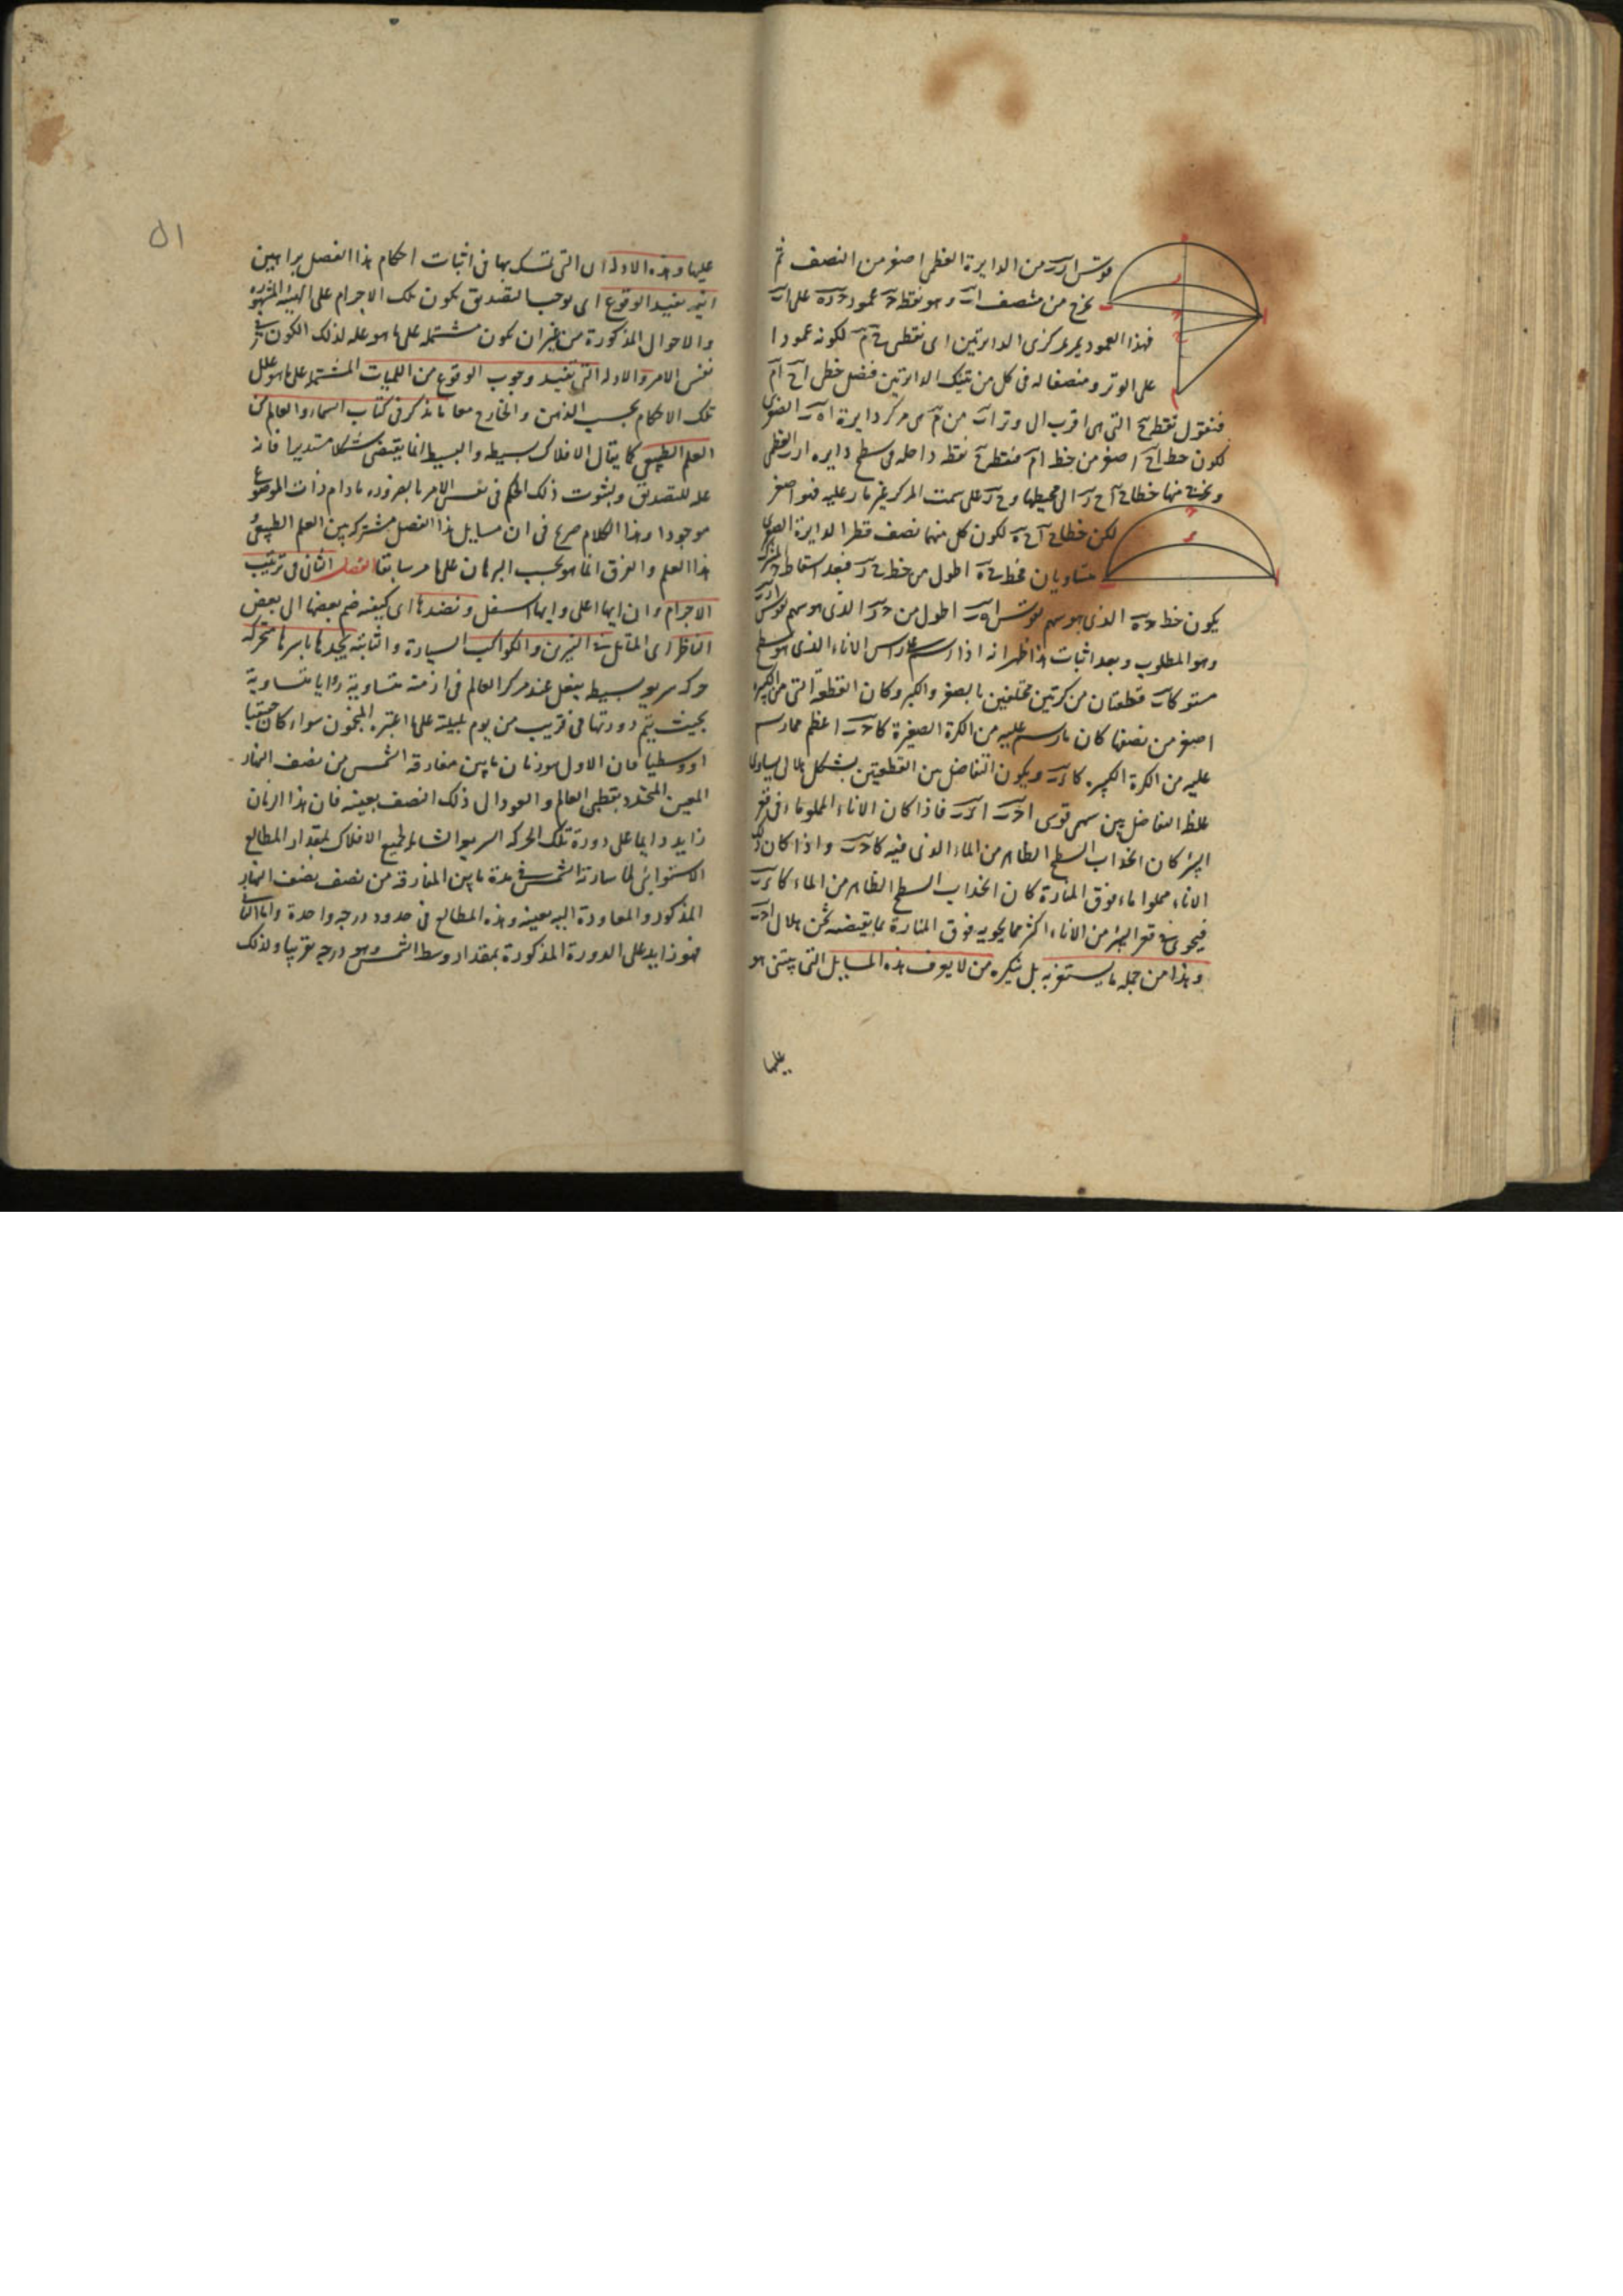 قوس ارب من الدايرة العظمى اصغر من النصف ثم
نخرج من منتصف اب وهو نقطة ح عمود ح ر ه على اب
فهذا العمود يمر بمركزى الدايرتين اى نقطتى ح م لكونه عمودا
على الوتر ومنصفا له فى كل من تينك الدايرتين فنصل خطى اح ام
فنقول نقطة ح التى هى اقرب الى وتر اب من م هى مركز دايرة اه ب الصغرى
لكون خط اح اصغر من خط ام فنقطة ح نقطة داخله فى سطح دايره ارب العظمى
وخرج منها خطا ح ا ح ر الى محيطها و ح ر على سمت المركز غير مار عليه فهو اصغر
لكن خطا ح ا ح ه لكون كل منهما نصف قطر الدايرة الصغرى
متساويان فخط ح ه اطول من خط ح ر فبعد اسقاط ح المشترك
يكون خط ه الذى هو سهم قوس اه ب اطول من ر الذى هو سهم قوس ارب
وهو المطلوب وبعد اثبات هذا ظهر انه اذا رسم على راس الاناء الذى هو سطح
مستو كاب قطعتان من كرتين مختلفين بالصغر والكبر وكان القطعة التى من الكبيرة
اصغر من نصفها كان ما رسم عليه من الكرة الصغيرة كا ح ب اعظم مما رسم
عليه من الكرة الكبيره كا ر ب ويكون التفاضل بين القطعتين بشكل هلالى يساوى
غلظ التفاضل بين سهمى قوسى ا ح ب ا ر ب فاذا كان الاناء المملو ماء فى قعر
البئر كان انحداب السطح الظاهر من الماء الذى فيه كا ح ب واذا كان ذلك
الاناء مملوا ماء فوق المنارة كان انحداب السطح الظاهر من الماء كا ر ب
فيحوى فى قعر البئر من الاناء اكثر مما يحويه فوق المنارة بما يقتضيه ثخن هلال ا ح ب
وهذا من جمله ما يستغربه بل ينكره من لا يعرف هذه المسايل التى يبتنى هو
عليها
٥١
عليها وهذه الادله اى التى تمسك بها فى اثبات احكام هذا الفصل براهين
انيه تفيد الوقوع اى توجب التصديق بكون تلك الاجرام على الهيئة المشهورة
والاحوال المذكورة من غير ان تكون مشتمله على ما هو عله لذلك الكون فى
نفس الامر والادله التى تفيد وجوب الوقوع من اللميات المشتمله على ما هو علل
تلك الاحكام بحسب الذهن والخارج معا ما يذكر فى كتاب السماء والعالم من
العلم الطبيعى كما يقال الافلاك بسيطه والبسيط انما يقتضى شكلا مستديرا فانه
عله للتصديق ولثبوت ذلك الحكم فى نفس الامر بالضروره ما دام ذات الموضوع
موجودا وهذا الكلام صريح فى ان مسايل هذا الفصل مشترك بين العلم الطبيعى
هذا العلم والفرق انما هو بحسب البرهان على ما مر سابقا الفصل الثانى فى ترتيب
الاجرام وان ايها اعلى وايها اسفل ونضدها اى كيفيه ضم بعضها الى بعض
الناظر اى المتامل فى النيرين والكواكب السيارة والثابته يجدها باسرها متحركه
حركه سريعه بسيطه يفعل عند مركز العالم فى ازمنه متساوية زوايا متساوية
بحيث يتم دورتها فى قريب من يوم بليلته على ما اعتبره المنجمون سواء كان حقيقيا
او وسطيا فان الاول هو زمان ما بين مفارقه الشمس من نصف النهار
المعين المتحدد بقطبى العالم والعود الى ذلك النصف بعينه فان هذا الزمان
زايد دايما على دورة تلك الحركه السريعه الشامله لجميع الافلاك بمقدار المطالع
الاستوائى لما سارته الشمس فى مدة ما بين المفارقه من نصف نصف النهار
المذكور والمعاودة اليه بعينه وهذه المطالع فى حدود درجه واحدة واما الثانى
فهو زايد على الدورة المذكورة بمقدار وسط الشمس وهو درجه تقريبا ولذلك